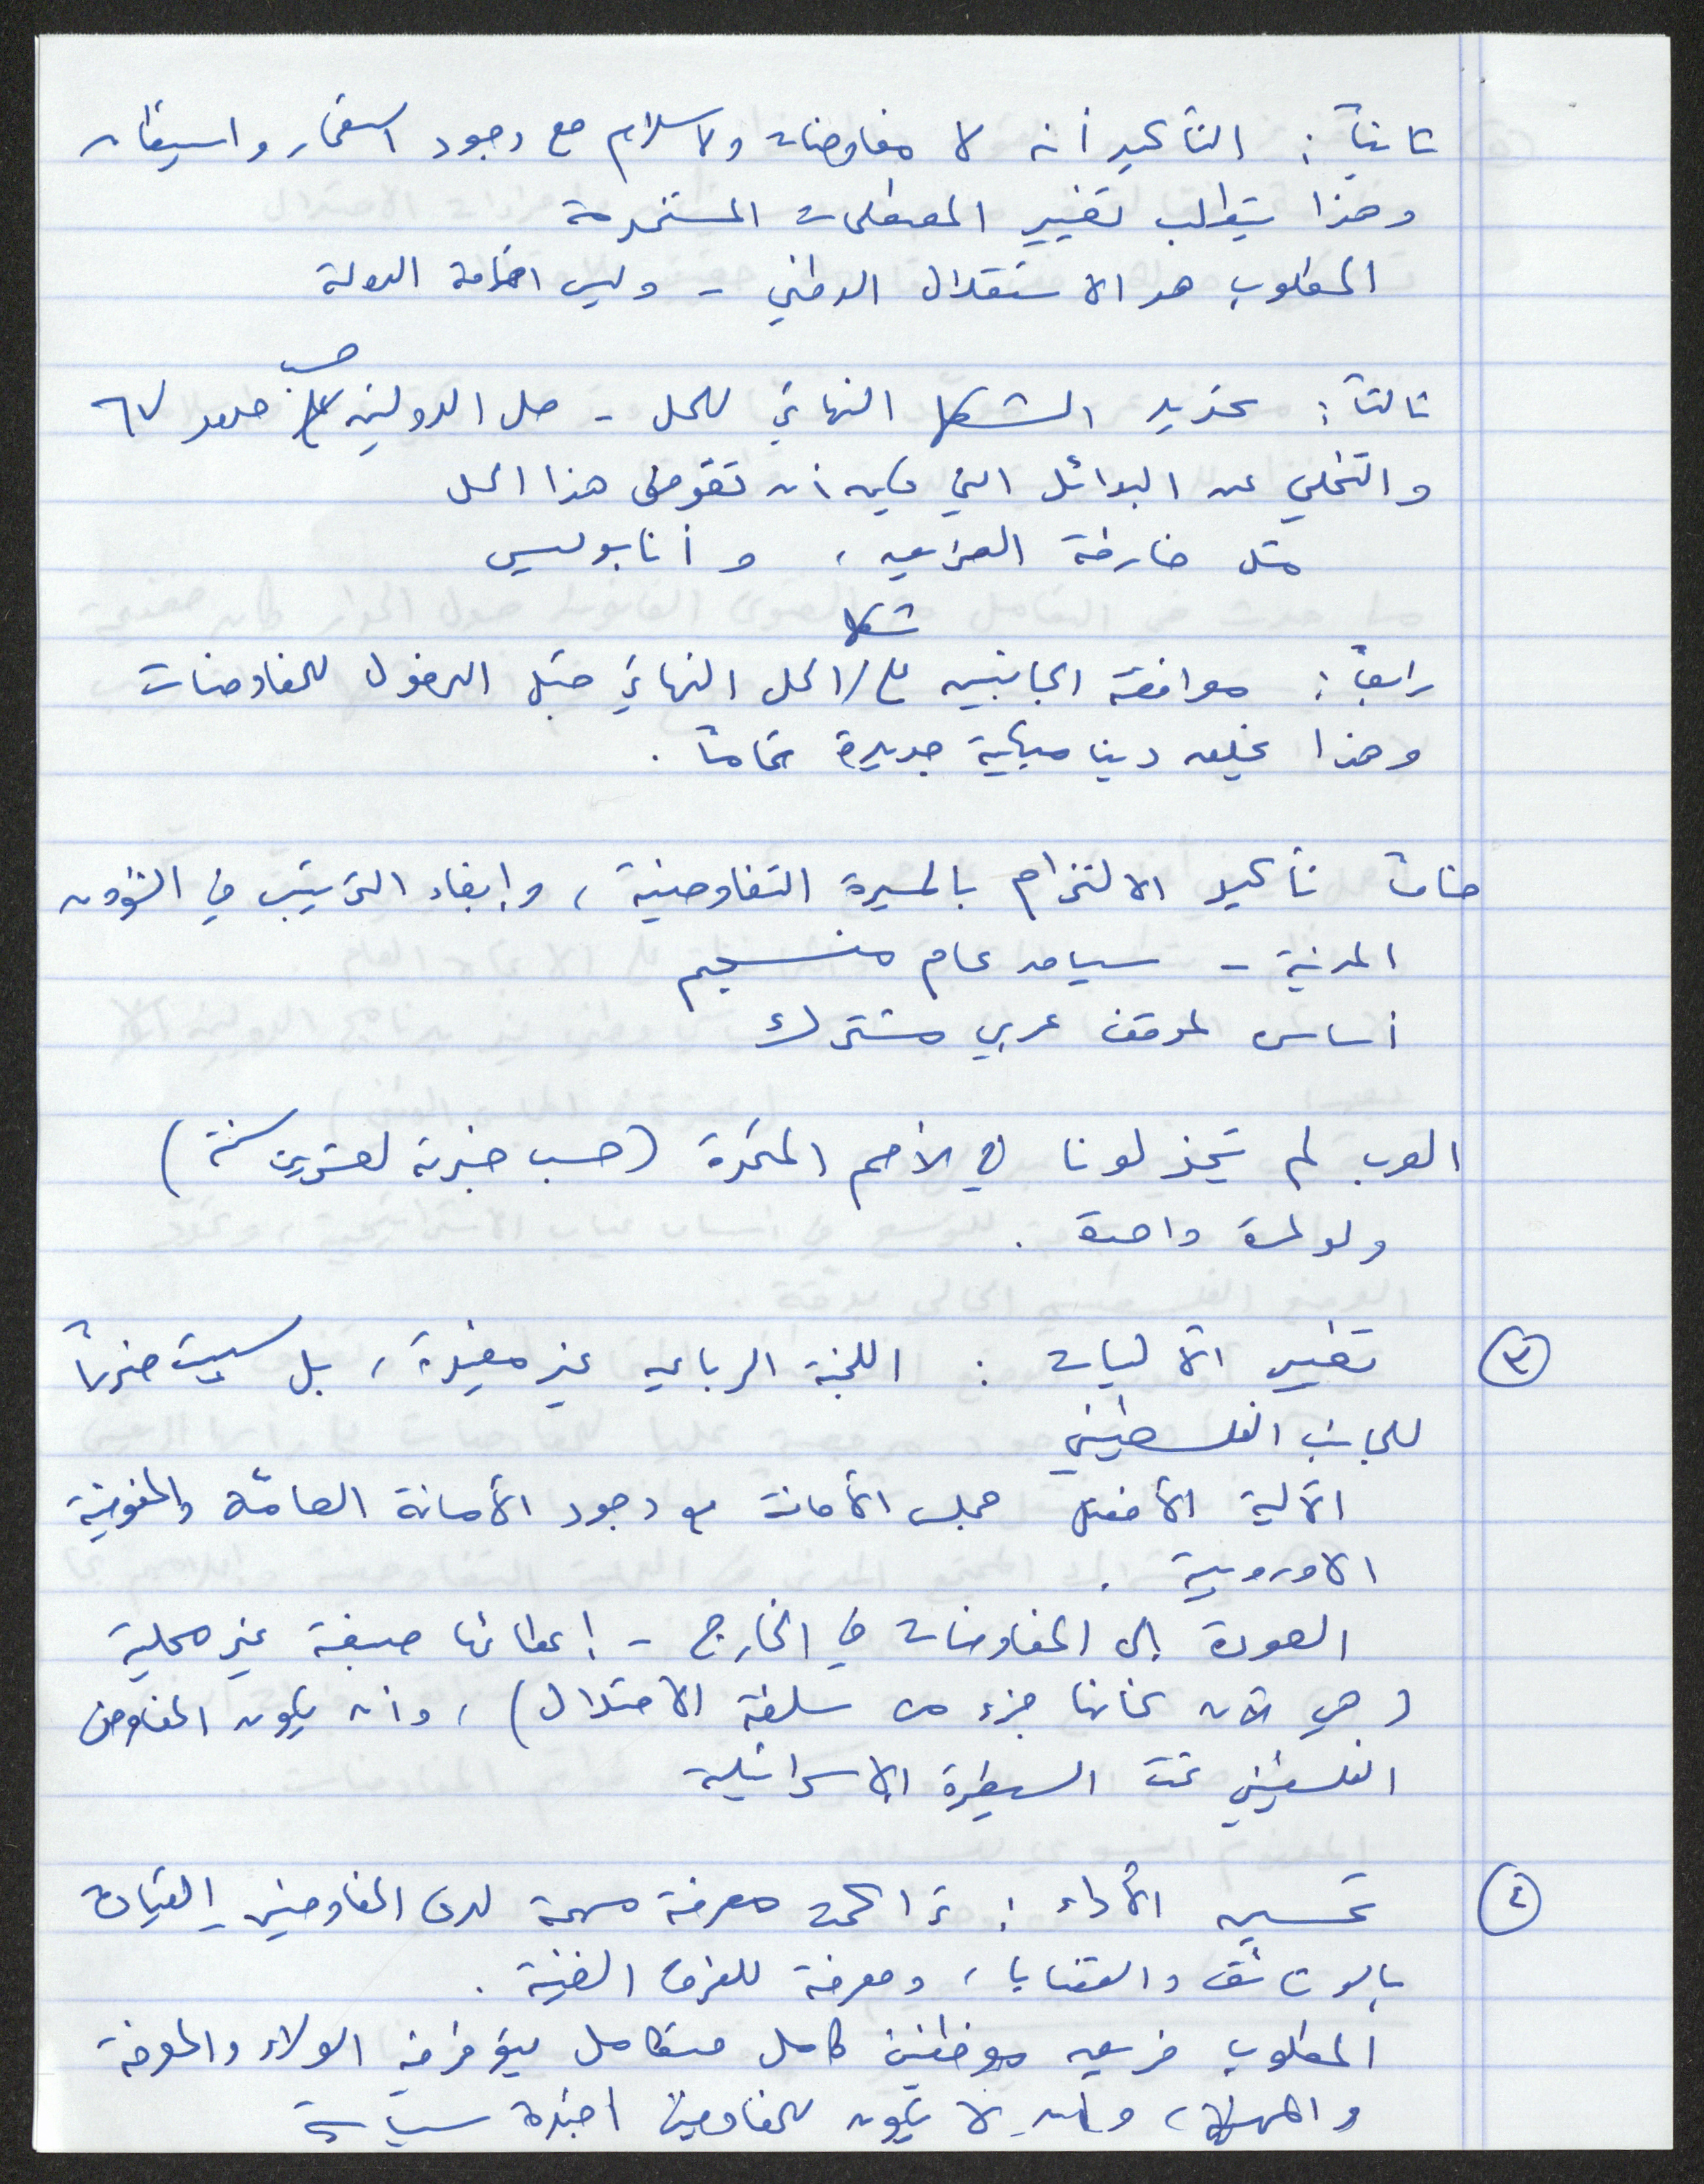 ثانياً : التأكيد أنه لا مفاوضات ولا سلام مع وجود استعمار واستيطان
وهذا يتطلب تغيير المصطلحات المستخدمة
المطلوب هو الاستقلال الوطني - وليس اقامة الدولة
ثالثاً : تحديد الشكل النهائي للحل - حل الدولتين حسب حدود ٦٧
والتخلي عن البدائل التي يمكن أن تقوض هذا الحل
مثل خارطة الطريق ، وأنابوليس
رابعاً : موافقة الجانبين على شكل الحل النهائي قبل الدخول للمفاوضات
وهذا يخلق ديناميكية جديدة تماماً .
خامساً تأكيد الالتزام بالمسيرة التفاوضية ، وإبقاء الترتيب في الشؤون
المدنية - سياسة عام منسجم
أساس لموقف عربي مشترك
العرب لم يخذلونا في الأمم المتحدة (حسب خبرته لعشرين سنة)
ولو لمرة واحدة .
٣ تغيير الآليات : اللجنة الرباعية غير مفيدة ، بل سببت ضرراً
للجانب الفلسطيني
الآلية الأفضل مجلس الأمن مع وجود الأمانة العامة والمفوضية
الاوروبية .
العودة إلى المفاوضات في الخارج - إعطائها صبغة غير محلية
(هي الآن كأنها جزء من سلطة الاحتلال) ، وأن يكون المفاوض
الفلسطيني تحت السيطرة الاسرائيلية
٤ تحسين الأداء : تراكمت معرفة مهمة لدى المفاوضين - القيادة
بالوثائق والقضايا ، ومعرفة للفرق الفنية .
المطلوب فريق موظفين كامل متكامل يتوفر فيه الولاء والمعرفة
والمهارة ، ولا يكون للمفاوضين أجندة سياسية